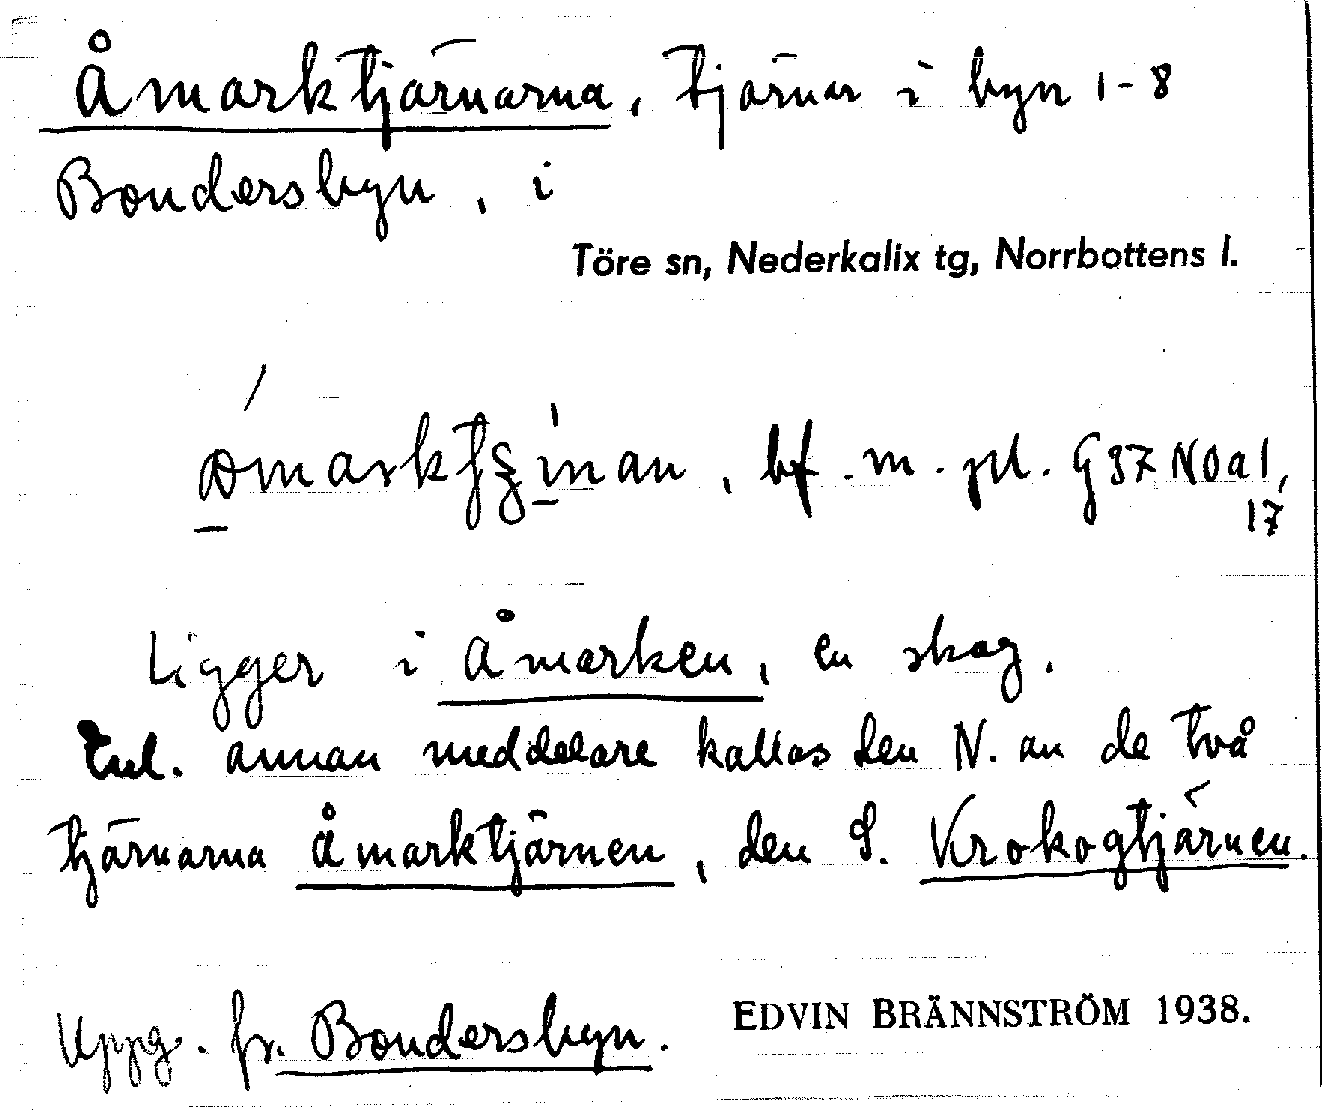 Åmarktjärnarna, tjärnar i byn 1-8
Bondersbyn, i
Töre sn, Nederkalix tg, Norrbottens l.
bf. m. pl. G37 NOa1,
17
Ligger i Åmarken, en skog.
Enl. annan meddelare kallas den N. av de två
tjärnarna Åmarktjärnen, den S. Krokogtjärnen.
Uppg. fr. Bondersbyn.
EDVIN BRÄNNSTRÖM 1938.